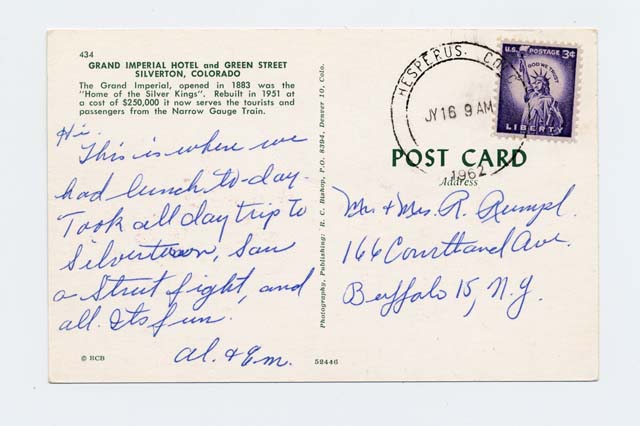 434
GRAND IMPERIAL HOTEL and GREEN STREET
SILVERTON, COLORADO
The Grand Imperial, opened in 1883 was the
"Home of the Silver Kings". Rebuilt in 1951 at
a cost of $250,000 it now serves the tourists and
passengers from the Narrow Gauge Train.
Hi.
This is where we
had lunch to-day.
Took all day trip to
Silvertown, Saw
a Street fight, and
all. Its fun.
Al. & Em.
© RCB
52446
Photography, Publishing: R. C. Bishop, P.O. 8394, Denver 10, Colo.
HESPERUS. CO
JY 16 9 AM
1962
U.S. POSTAGE 3¢
IN GOD WE TRUST
LIBERTY
POST CARD
Address
Mr & Mrs. R. Rumpl.
166 Courtland Ave.
Buffalo 15, N.Y.